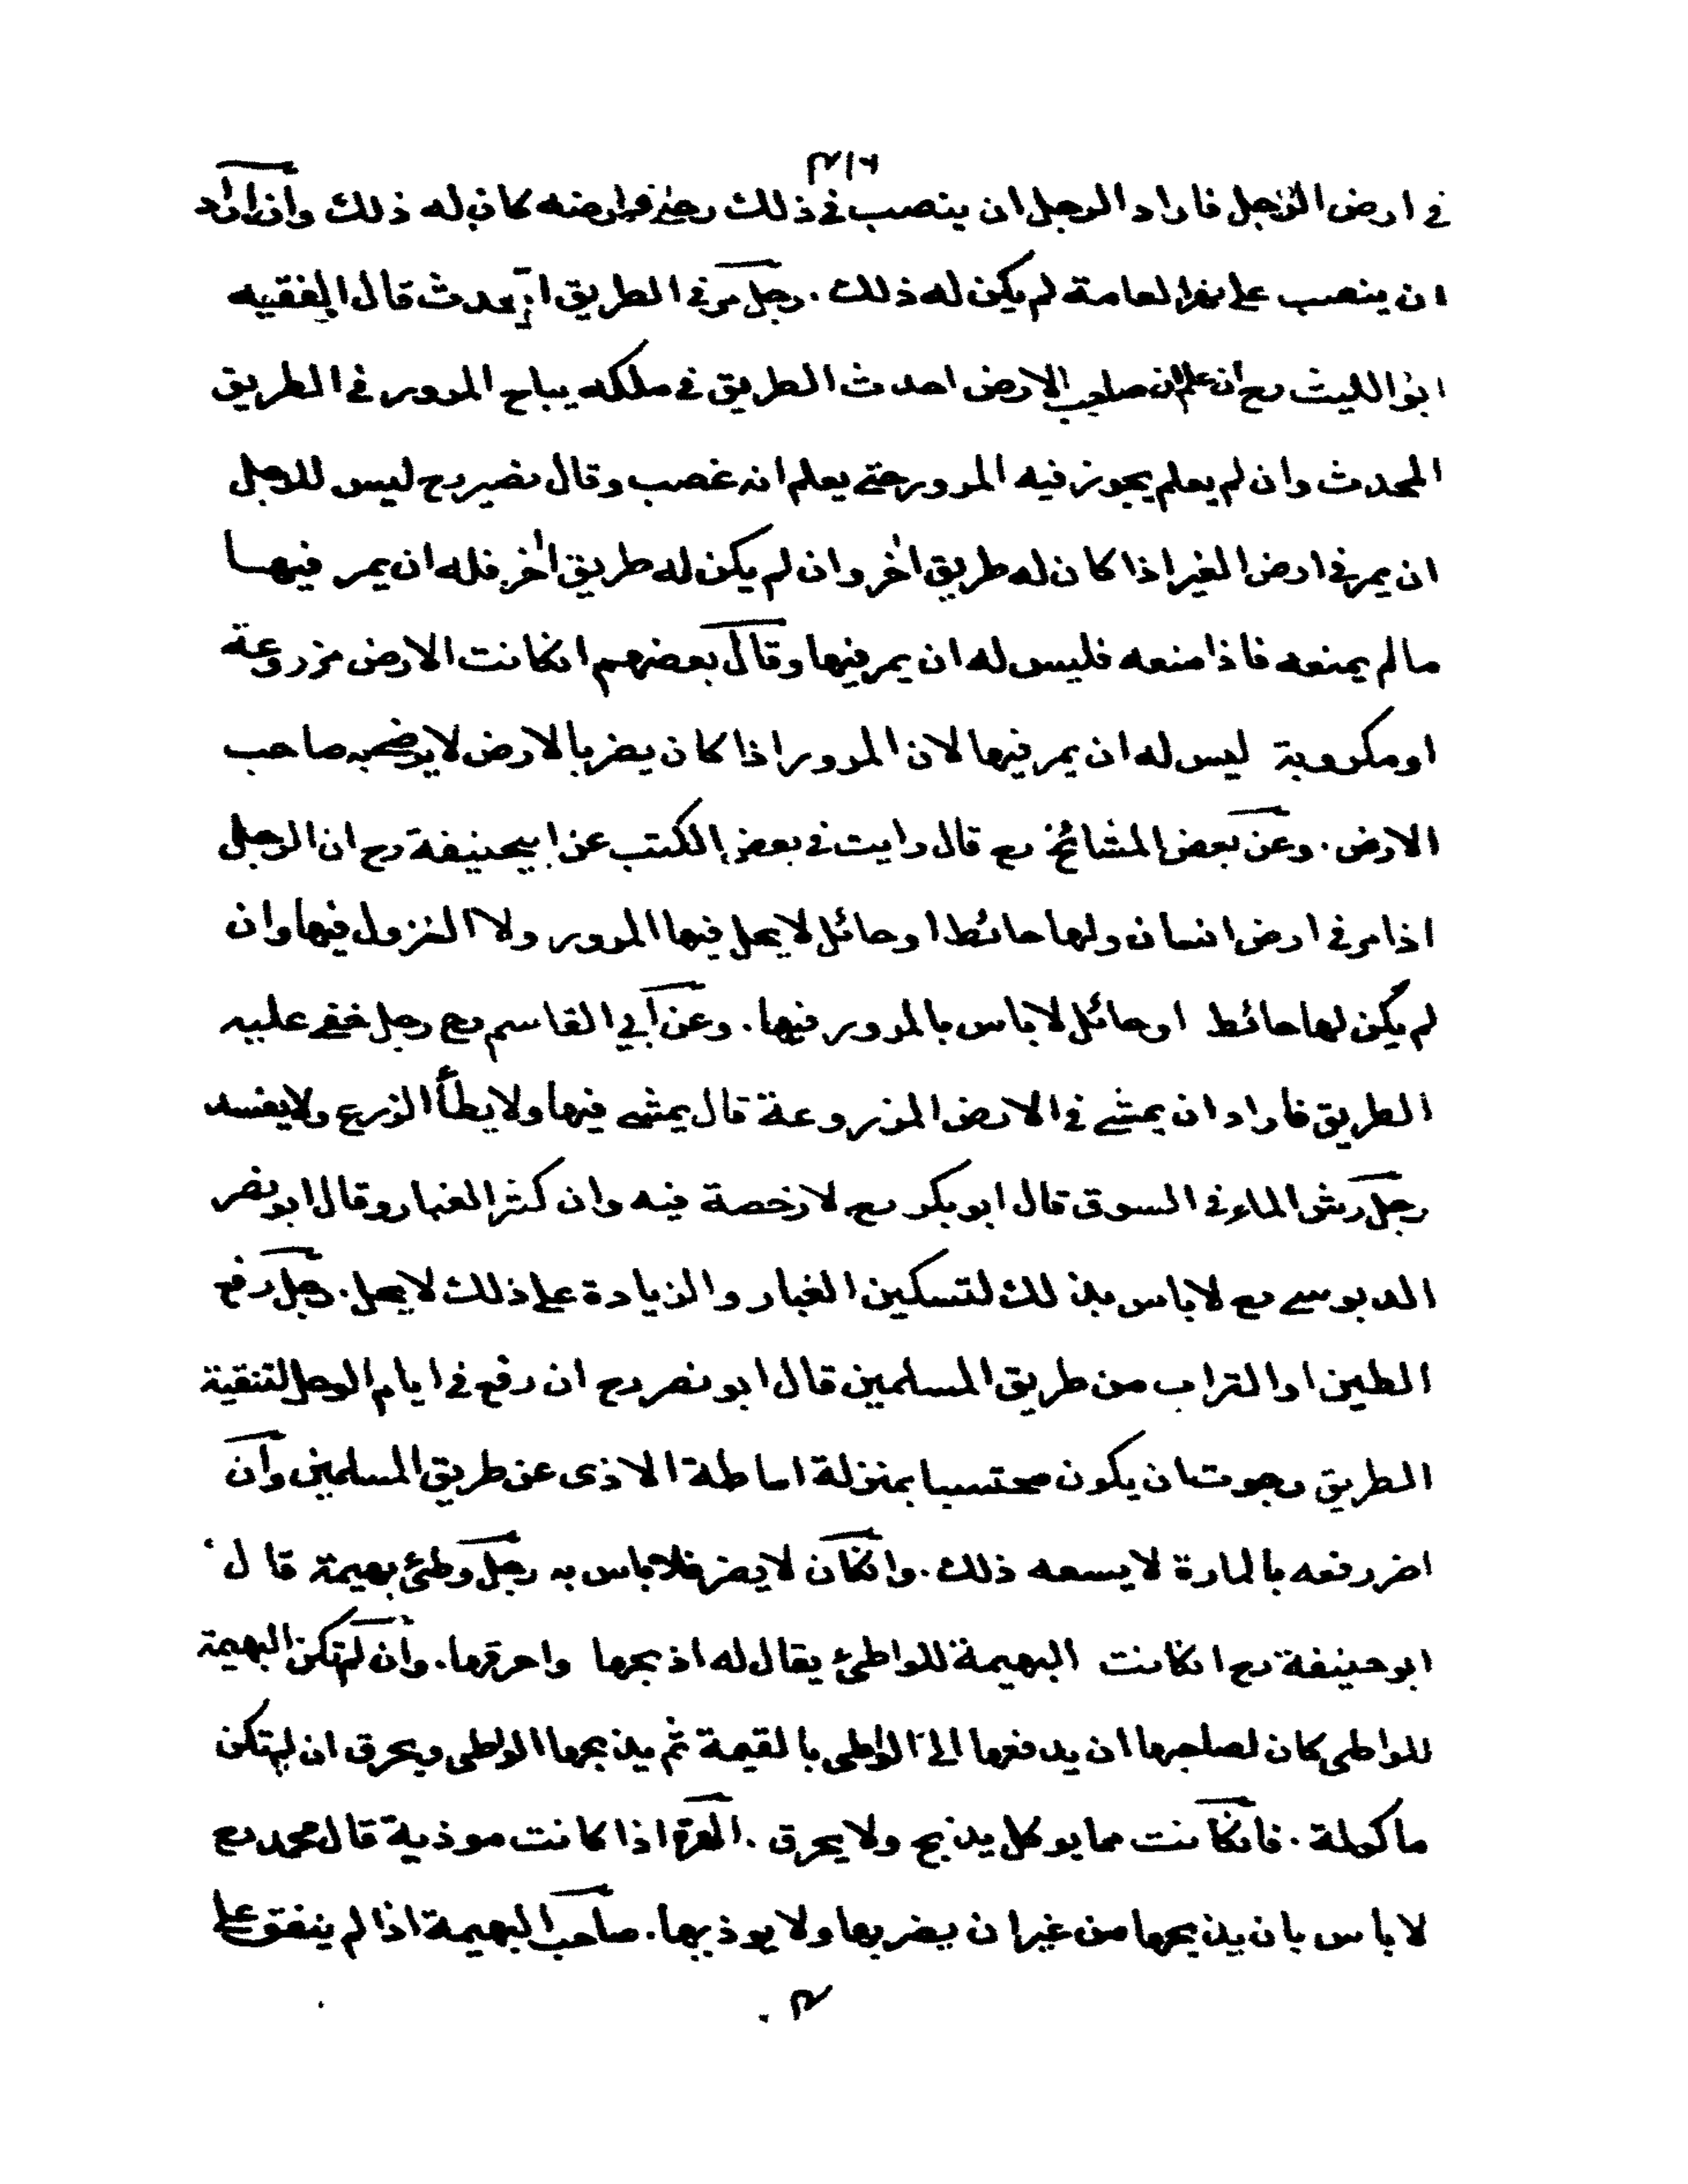 في ارض الرجل فاراد الرجل ان ينصب في ذلك رحى في ارضه كان له ذلك وان اراد
ان ينصب على نهر العامة لم يكن له ذلك . رجل مر في الطريق المحدث قال الفقيه
ابو الليث رح ان علم ان صاحب الارض احدث الطريق في ملكه يباح المرور في الطريق
المحدث وان لم يعلم يجوز فيه المرور حتى يعلم انه غصب وقال نصير رح ليس للرجل
ان يمر في ارض الغير اذا كان له طريق اخر وان لم يكن له طريق اخر فله ان يمر فيها
مالم يمنعه فاذا منعه فليس له ان يمر فيها وقال بعضهم انكانت الارض مزروعة
او مكروبة ليس له ان يمر فيها لان المرور اذا كان يضر بالارض لا يرضى به صاحب
الارض . وعن بعض المشائخ رح قال رايت في بعض الكتب عن ابيحنيفة رح ان الرجل
اذا مر في ارض انسان ولها حائط او حائل لا يحل فيها المرور ولا النزول فيها وان
لم يكن لها حائط او حائل لا باس بالمرور فيها . وعن ابي القاسم رح رجل خفي عليه
الطريق فاراد ان يمشي في الارض المزروعة قال يمشي فيها ولا يطأ الزرع ولا يفسد
رجل رش الماء في السوق قال ابو بكر رح لا رخصة فيه وان كثر الغبار وقال ابو نصر
الدبوسي رح لا باس بذلك لتسكين الغبار والزيادة على ذلك لا يحل . رجل رفع
الطين او التراب من طريق المسلمين قال ابو نصر رح ان رفع في ايام الوحل لتنقية
الطريق رجوت ان يكون محتسبا بمنزلة اماطة الاذى عن طريق المسلمين وان
اضر رفعه بالمارة لا يسعه ذلك . وانكان لا يضر فلا باس به رجل وطئ بهيمة قال
ابو حنيفة رح انكانت البهيمة للواطئ يقال له اذبحها واحرقها . وان لم تكن البهيمة
للواطى كان لصاحبها ان يدفعها الى الواطى بالقيمة ثم يذبحها الواطى ويحرق ان لم تكن
ماكولة . فانكانت مما يوكل يذبح ولا يحرق . الهرة اذا كانت موذية قال محمد رح
لا باس بان يذبحها من غير ان يضربها ولا يوذيها . صاحب البهيمة اذا لم ينفق على